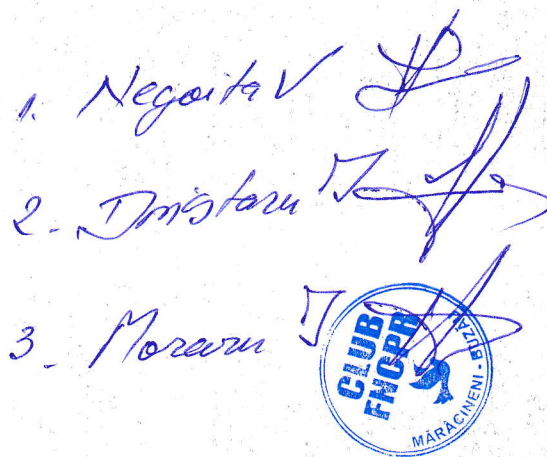 1. Negoita V
2. Dnistaru I
3. Moraru I
CLUB
FNCPR
MĂRĂCINENI - BUZĂU